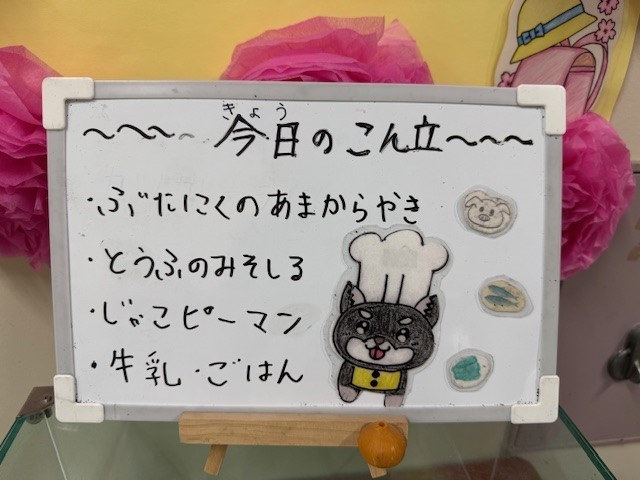 きょう
～～～～ 今日のこん立～～～
・ぶたにくのあまからやき
・とうふのみそしる
・じゃこピーマン
・牛乳・ごはん